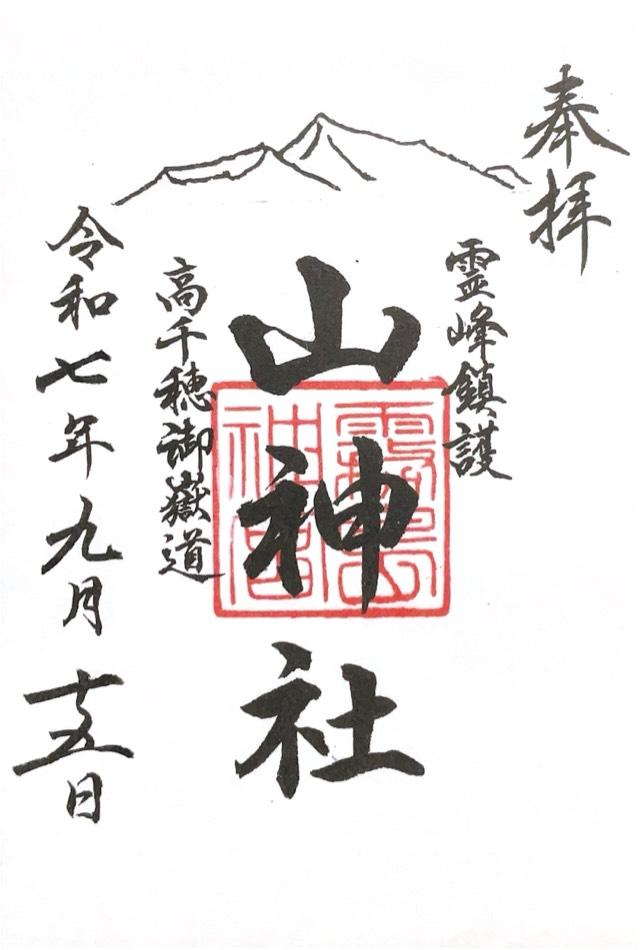 奉拝
霊峰鎮護
山神社
高千穂御嶽道
令和七年九月十五日
霧島神宮